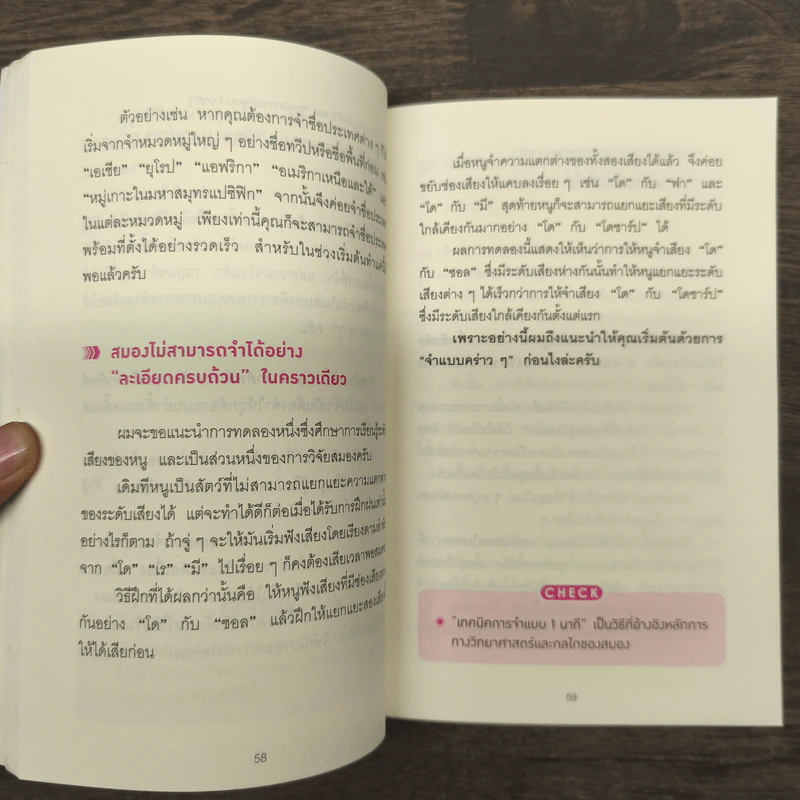 ตัวอย่างเช่น หากคุณต้องการจำชื่อประเทศต่าง ๆ
เริ่มจากจำหมวดหมู่ใหญ่ ๆ อย่างชื่อทวีปหรือชื่อพื้นที่ก่อน
“เอเชีย” “ยุโรป” “แอฟริกา” “อเมริกาเหนือและใต้”
“หมู่เกาะในมหาสมุทรแปซิฟิก” จากนั้นจึงค่อยจำชื่อประเทศ
ในแต่ละหมวดหมู่ เพียงเท่านี้คุณก็จะสามารถจำชื่อประเทศ
พร้อมที่ตั้งได้อย่างรวดเร็ว สำหรับในช่วงเริ่มต้นทำแค่นี้
พอแล้วครับ
สมองไม่สามารถจำได้อย่าง
“ละเอียดครบถ้วน” ในคราวเดียว
ผมจะขอแนะนำการทดลองหนึ่งซึ่งศึกษาการเรียนรู้
เสียงของหนู และเป็นส่วนหนึ่งของการวิจัยสมองครับ
เดิมทีหนูเป็นสัตว์ที่ไม่สามารถแยกแยะความแตกต่าง
ของระดับเสียงได้ แต่จะทำได้ดีก็ต่อเมื่อได้รับการฝึกฝนเท่านั้น
อย่างไรก็ตาม ถ้าจู่ ๆ จะให้มันเริ่มฟังเสียงโดยเรียงตามลำดับ
จาก “โด” “เร” “มี” ไปเรื่อย ๆ ก็คงต้องเสียเวลาพอสมควร
วิธีฝึกที่ได้ผลกว่านั้นคือ ให้หนูฟังเสียงที่มีช่องเสียง
กันอย่าง “โด” กับ “ซอล” แล้วฝึกให้แยกแยะสองเสียง
ให้ได้เสียก่อน
58
เมื่อหนูจำความแตกต่างของทั้งสองเสียงได้แล้ว จึงค่อย
ขยับช่องเสียงให้แคบลงเรื่อย ๆ เช่น “โด” กับ “ฟา” และ
“โด” กับ “มี” สุดท้ายหนูก็จะสามารถแยกแยะเสียงที่มีระดับ
ใกล้เคียงกันมากอย่าง “โด” กับ “โดชาร์ป” ได้
ผลการทดลองนี้แสดงให้เห็นว่าการให้หนูจำเสียง “โด”
กับ “ซอล” ซึ่งมีระดับเสียงห่างกันนั้นทำให้หนูแยกแยะระดับ
เสียงต่าง ๆ ได้เร็วกว่าการให้จำเสียง “โด” กับ “โดชาร์ป”
ซึ่งมีระดับเสียงใกล้เคียงกันตั้งแต่แรก
เพราะอย่างนี้ผมถึงแนะนำให้คุณเริ่มต้นด้วยการ
“จำแบบคร่าว ๆ” ก่อนไงล่ะครับ
CHECK
“เทคนิคการจำแบบ 1 นาที” เป็นวิธีที่อ้างอิงหลักการ
ทางวิทยาศาสตร์และกลไกของสมอง
59